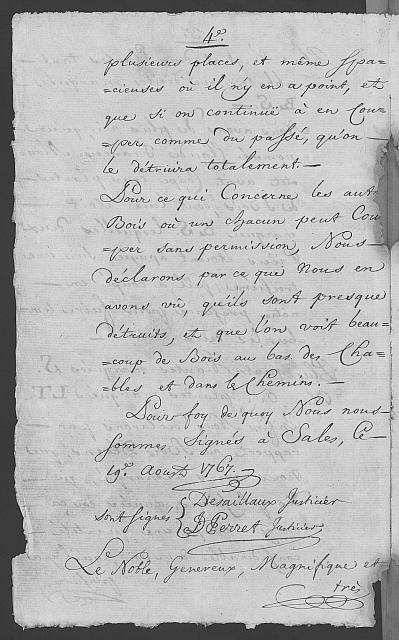 4.º
plusieurs places, et même spa=
=cieuses où il n'y en a point, et
que si on continuë à en Cou=
=per comme du passé, qu'on
le détruira totalement. —
Pour ce qui Concerne les aut
Bois où un chacun peut Cou
=per sans permission, Nous
déclarons, par ce que Nous en
avons vû, qu'ils sont presque
détruits, et que l'on voit beau=
=coup de Bois au bas des Cha=
=bles et dans le Chemins. —
Pour foy de quoy Nous nous
sommes Signés à Sales, Ce
19.e Aoust 1767.
sont signés { Desaillaux Justicier
D Perret Justicier
Le Noble, Genereux, Magnifique et
très